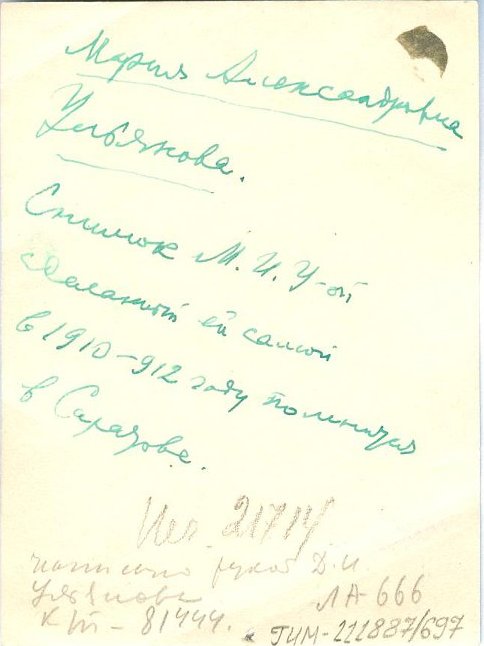 Мария Александровна
Ульянова.
Снимок М. И. У-ой
сделанный ей самой
в 1910-912 году
в Саратове.
21714
написано рукой Д. И.
Ульянова
ЛА-666
КП - 81444.
ГИМ-111887/697